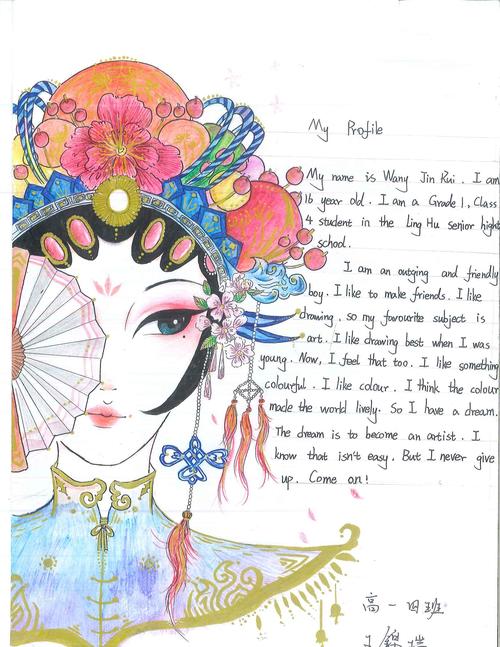 My Profile
My name is Wang Jin Rui. I am
16 year old. I am a Grade 1, Class
4 student in the Ling Hu senior hight
school.
I am an outging and friendly
boy. I like to make friends. I like
drawing. so my favourite subject is
art. I like drawing best when I was
young. Now, I feel that too. I like something
colourful. I like colour. I think the colour
made the world lively. So I have a dream.
The dream is to become an artist. I
know that isn't easy. But I never give
up. Come on!
高一四班